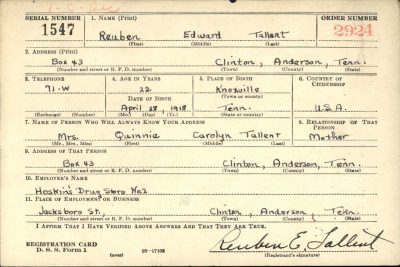 SERIAL NUMBER 1. NAME (Print) ORDER NUMBER
1547 Reuben Edward Tallent 2924
(First) (Middle) (Last)
2. ADDRESS (Print)
Box 43 Clinton, Anderson, Tenn.
(Number and street or R. F. D. number) (Town) (County) (State)
3. TELEPHONE 4. AGE IN YEARS 5. PLACE OF BIRTH 6. COUNTRY OF CITIZENSHIP
71-W 22 Knoxville
DATE OF BIRTH (Town or county)
April 28, 1918 Tenn. U.S.A.
(Exchange) (Number) (Mo.) (Day) (Yr.) (State or country)
7. NAME OF PERSON WHO WILL ALWAYS KNOW YOUR ADDRESS 8. RELATIONSHIP OF THAT PERSON
Mrs. Quinnie Carolyn Tallent Mother
(Mr., Mrs., Miss) (First) (Middle) (Last)
9. ADDRESS OF THAT PERSON
Box 43 Clinton, Anderson, Tenn.
(Number and street or R. F. D. number) (Town) (County) (State)
10. EMPLOYER'S NAME
Hoskin's Drug Store No2
11. PLACE OF EMPLOYMENT OR BUSINESS
Jacksboro St., Clinton, Anderson, Tenn.
(Number and street or R. F. D. number) (Town) (County) (State)
I AFFIRM THAT I HAVE VERIFIED ABOVE ANSWERS AND THAT THEY ARE TRUE.
REGISTRATION CARD Reuben E. Tallent
D. S. S. Form 1 (over) 16-17105 (Registrant's signature)